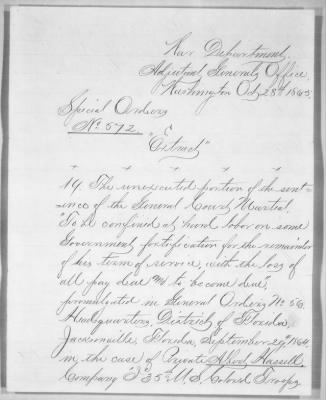 War Department,
Adjutant General's Office,
Washington Oct. 28th 1865.
Special Orders
No. 572.
"Extract"
19. The unexecuted portion of the sent-
ence of the General Court Martial,
"To be confined at hard labor on some
Government fortification for the remainder
of his term of service, with the loss of
all pay due and to become due,"
promulgated in General Orders No. 56,
Headquarters, District of Florida,
Jacksonville, Florida, September 29th 1864,
in the case of Private
Company "I" 35th U.S. Colored Troops